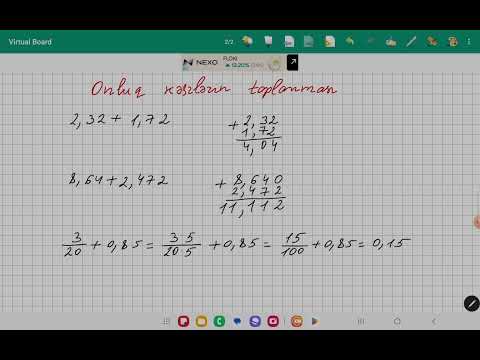 Virtual Board
2/2
NEXO
FLOKI
▲ 12.20% (24h)
Onluq kəsrlərin toplanması
2,32 + 1,72
+ 2,32
1,72
4,04
8,64 + 2,472
+ 8,640
2,472
11,112
3/20 + 0,85 = 3 5/20 5 + 0,85 = 15/100 + 0,85 = 0,15